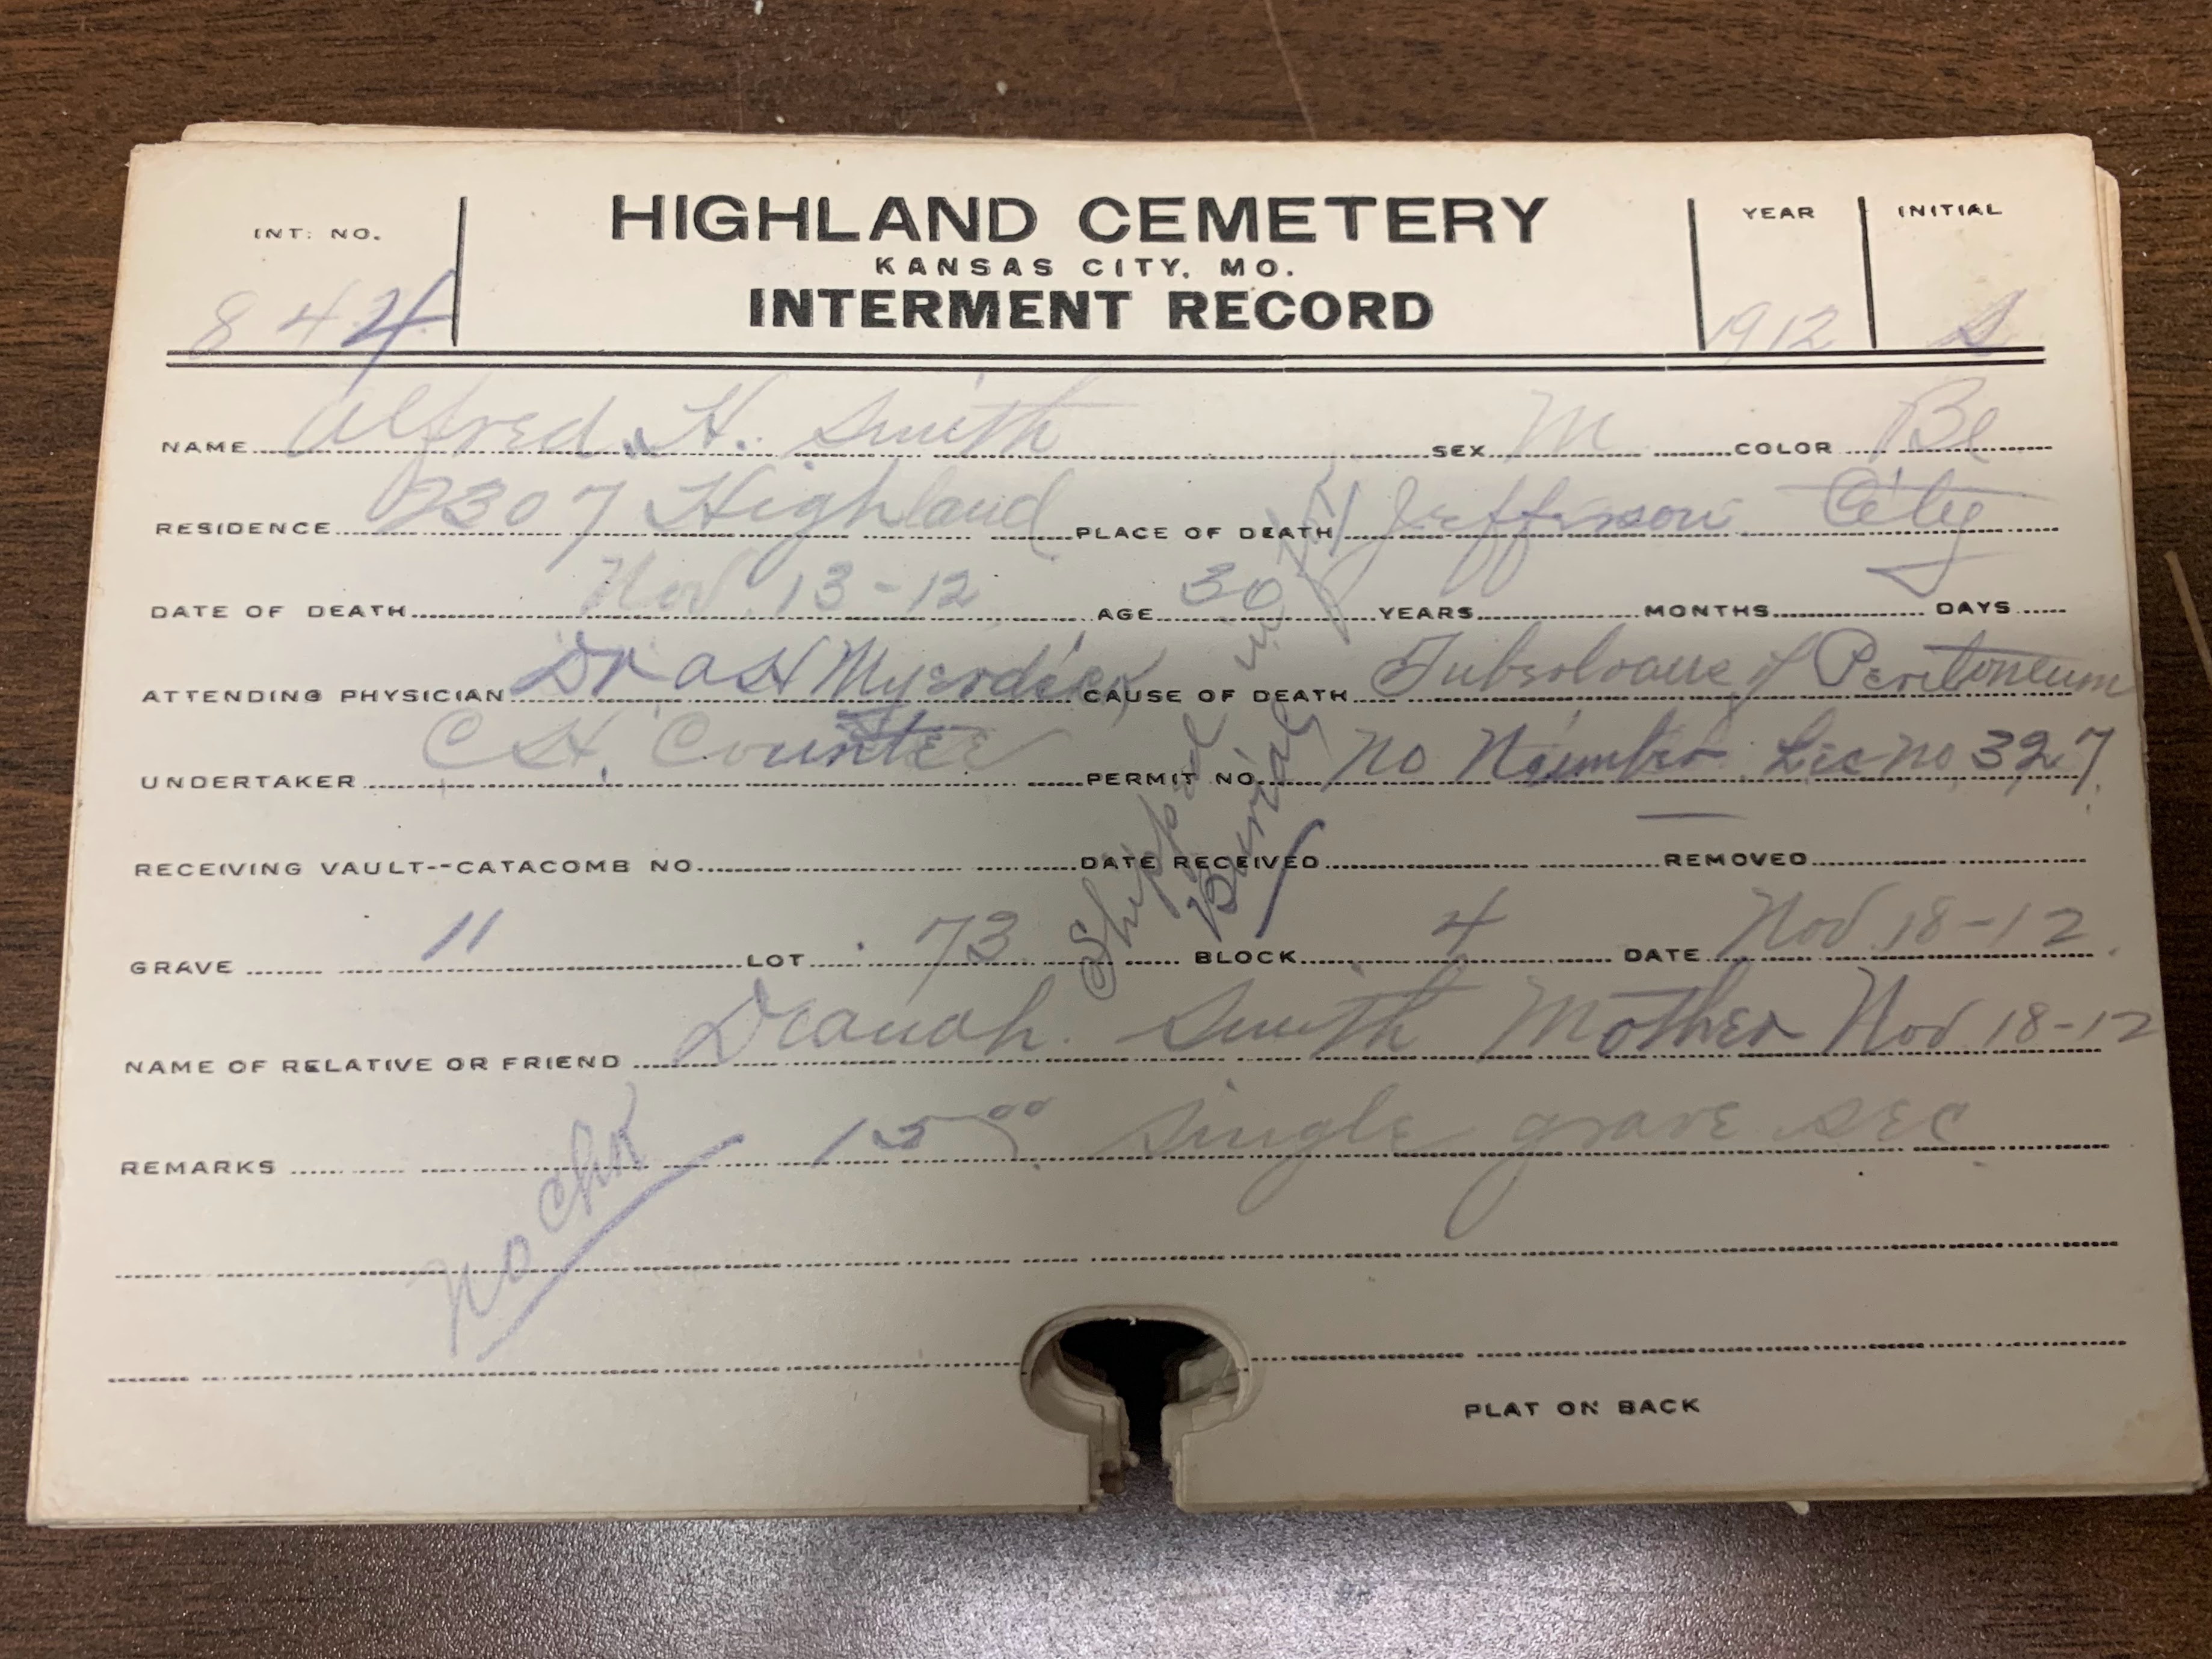 INT. NO. HIGHLAND CEMETERY YEAR INITIAL
KANSAS CITY, MO.
844 INTERMENT RECORD 1912 S
NAME Alfred H. Smith SEX M COLOR Bl
RESIDENCE 2307 Highland PLACE OF DEATH Jefferson City
DATE OF DEATH Nov. 13-12 AGE 30 YEARS MONTHS DAYS
ATTENDING PHYSICIAN Dr CAUSE OF DEATH of Peritoneum
UNDERTAKER C H. Countee PERMIT NO. No Number Lic no 327
RECEIVING VAULT--CATACOMB NO. DATE RECEIVED REMOVED
Shipped in for
Burial
GRAVE 11 LOT 73 BLOCK 4 DATE Nov. 18-12
NAME OF RELATIVE OR FRIEND Smith Mother Nov. 18-12
REMARKS 15.00 single grave sec
No Chk
PLAT ON BACK